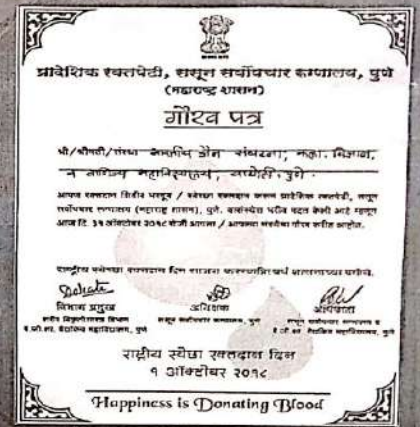 प्रादेशिक रक्तपेढी, ससून सर्वोपचार रुग्णालय, पुणे
(महाराष्ट्र शासन)
गौरव पत्र
श्री/श्रीमती/संस्था भारतीय जैन संघटना, कला, विज्ञान,
व वाणिज्य महाविद्यालय, वाघोली, पुणे.
आपण रक्तदान शिबीर भरवून / स्वेच्छा रक्तदान करून प्रादेशिक रक्तपेढी, ससून
सर्वोपचार रुग्णालय (महाराष्ट्र शासन), पुणे. यासंस्थेस मदत केली आहे म्हणून
आज दि. ३१ ऑक्टोबर २०१८ रोजी आपला / आपल्या संस्थेचा गौरव करीत आहोत.
राष्ट्रीय स्वेच्छा रक्तदान दिन साजरा
विभाग प्रमुख अधिक्षक अधिष्ठाता
ससून सर्वोपचार रुग्णालय, पुणे
बै.जी.शा. वैद्यकिय महाविद्यालय, पुणे
राष्ट्रीय स्वेच्छा रक्तदान दिन
१ ऑक्टोबर २०१८
Happiness is Donating Blood